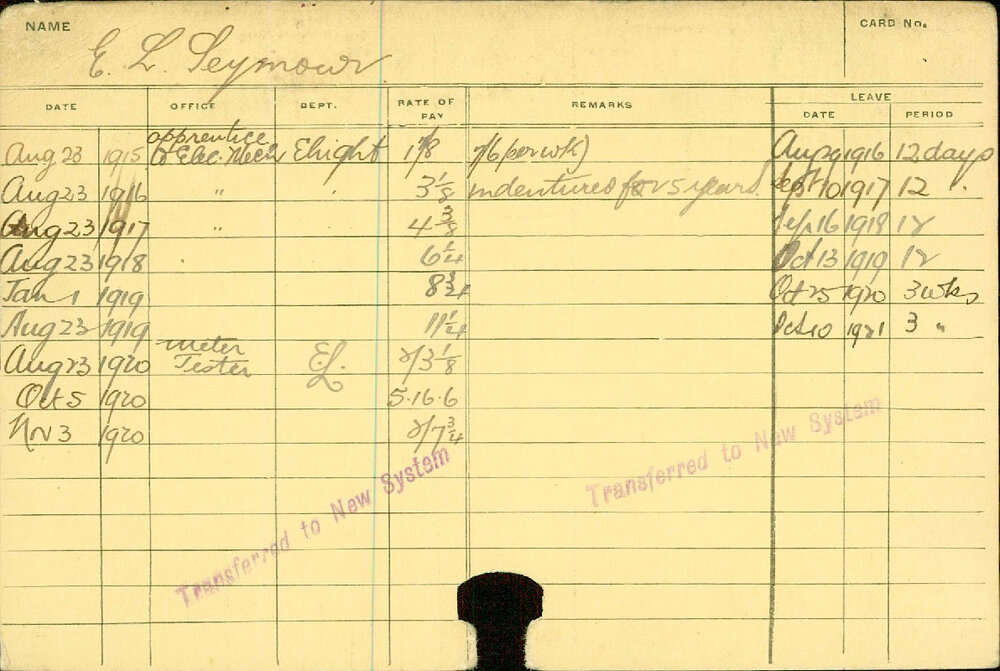 NAME
CARD No.
E. L. Seymour
DATE OFFICE DEPT. RATE OF PAY REMARKS LEAVE
DATE PERIOD
apprentice
Aug 23 1915 to Elec. Mech Elight 1⅞ 7/6 per wk) Aug 29 1916 12 days
Aug 23 1916 " " 3⅛ indentured for 5 years. Sept 10 1917 12 "
Aug 23 1917 " 4⅜ Sep 16 1918 12
Aug 23 1918 " 6¼ Oct 13 1919 12
Jan 1 1919 8¾ Oct 25 1920 3 wks
Aug 23 1919 11¼ Oct 10 1921 3 "
meter
Aug 23 1920 Tester EL. 2/3⅛
Oct 5 1920 5.16.6
Nov 3 1920 2/7¾
Transferred to New System
Transferred to New System